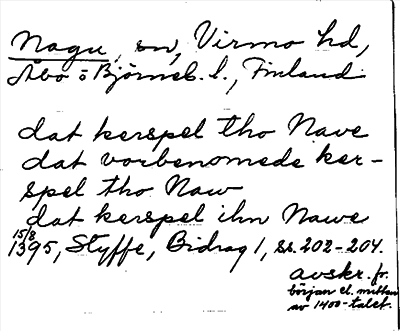 Nagu, sn, Virmo hd,
Åbo o Björneb. l., Finland.
dat kerspel tho Nave
dat vorbenomede ker-
spel tho Naw
dat kerspel ihn Nawe
15/8
1395, Styffe, Bidrag 1, ss. 202-204.
avskr. fr.
början el. mitten
av 1400-talet.